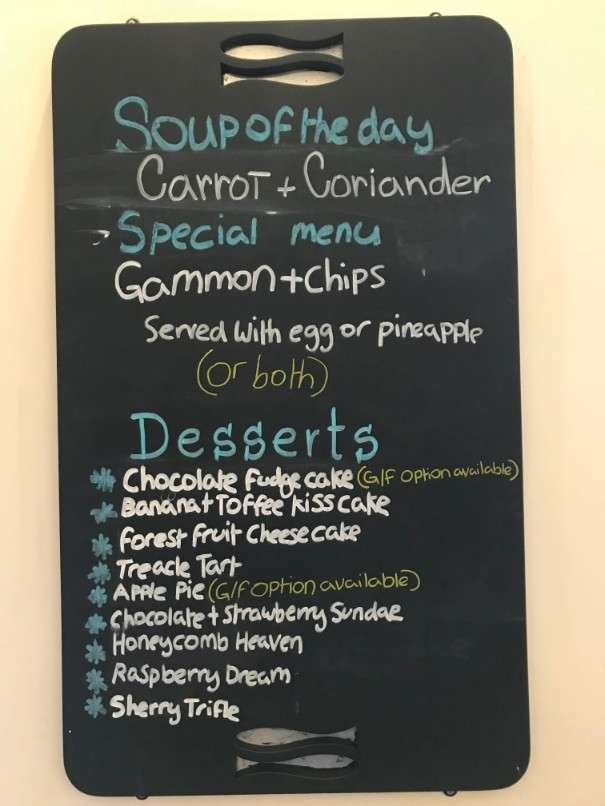 Soup of the day
Carrot + Coriander
Special menu
Gammon + Chips
Served with egg or pineapple
(or both)
Desserts
* Chocolate fudge cake (G/F option available)
* Banana + Toffee kiss cake
* Forest fruit Cheese cake
* Treacle Tart
* Apple Pie (G/F option available)
* Chocolate + Strawberry Sundae
* Honeycomb Heaven
* Raspberry Dream
* Sherry Trifle